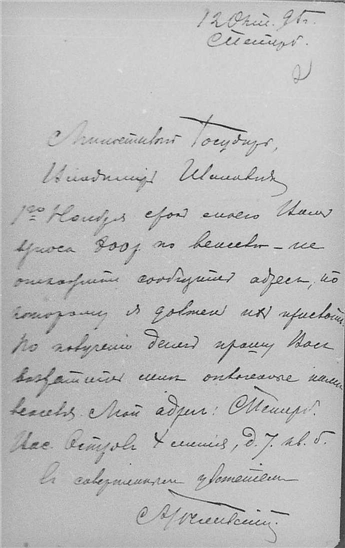 12 Окт. 95 г.
СПетерб.
2
Милостивый Государь,
Владимир Иванович
1го Ноября срок моего Вам
по векселю - не
откажите сообщить адрес, по
которому я должен их прислать.
По получении денег прошу Вас
возвратить мне
векселя. Мой адрес: СПетерб.
Вас. Остров 4 линия, д. 7. кв. 6.
С совершенным уважением